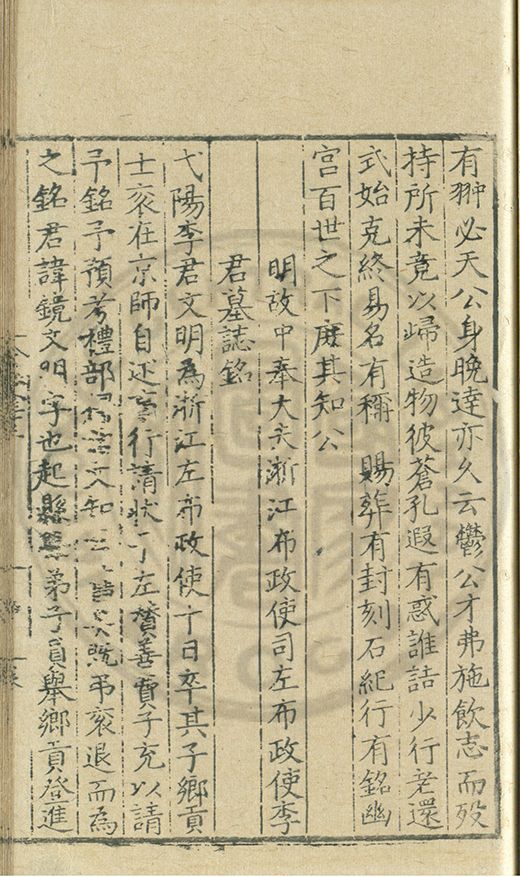 有翀必天公身晚達亦久云鬱公才弗施飲志而歿
持所未竟以歸造物彼蒼孔遐有惑誰詰少行老還
式始克終易名有稱　賜葬有封刻石紀行有銘幽
宮百世之下庶其知公
明故中奉大夫浙江布政使司左布政使李
君墓誌銘
弋陽李君文明為浙江左布政使十日卒其子鄉貢
士衮在京師自述行請狀于左賛善費子充以請
予銘予預考禮部文知既弔衮退而為
之銘君諱鏡文明字也起縣弟子員舉鄉貢登進